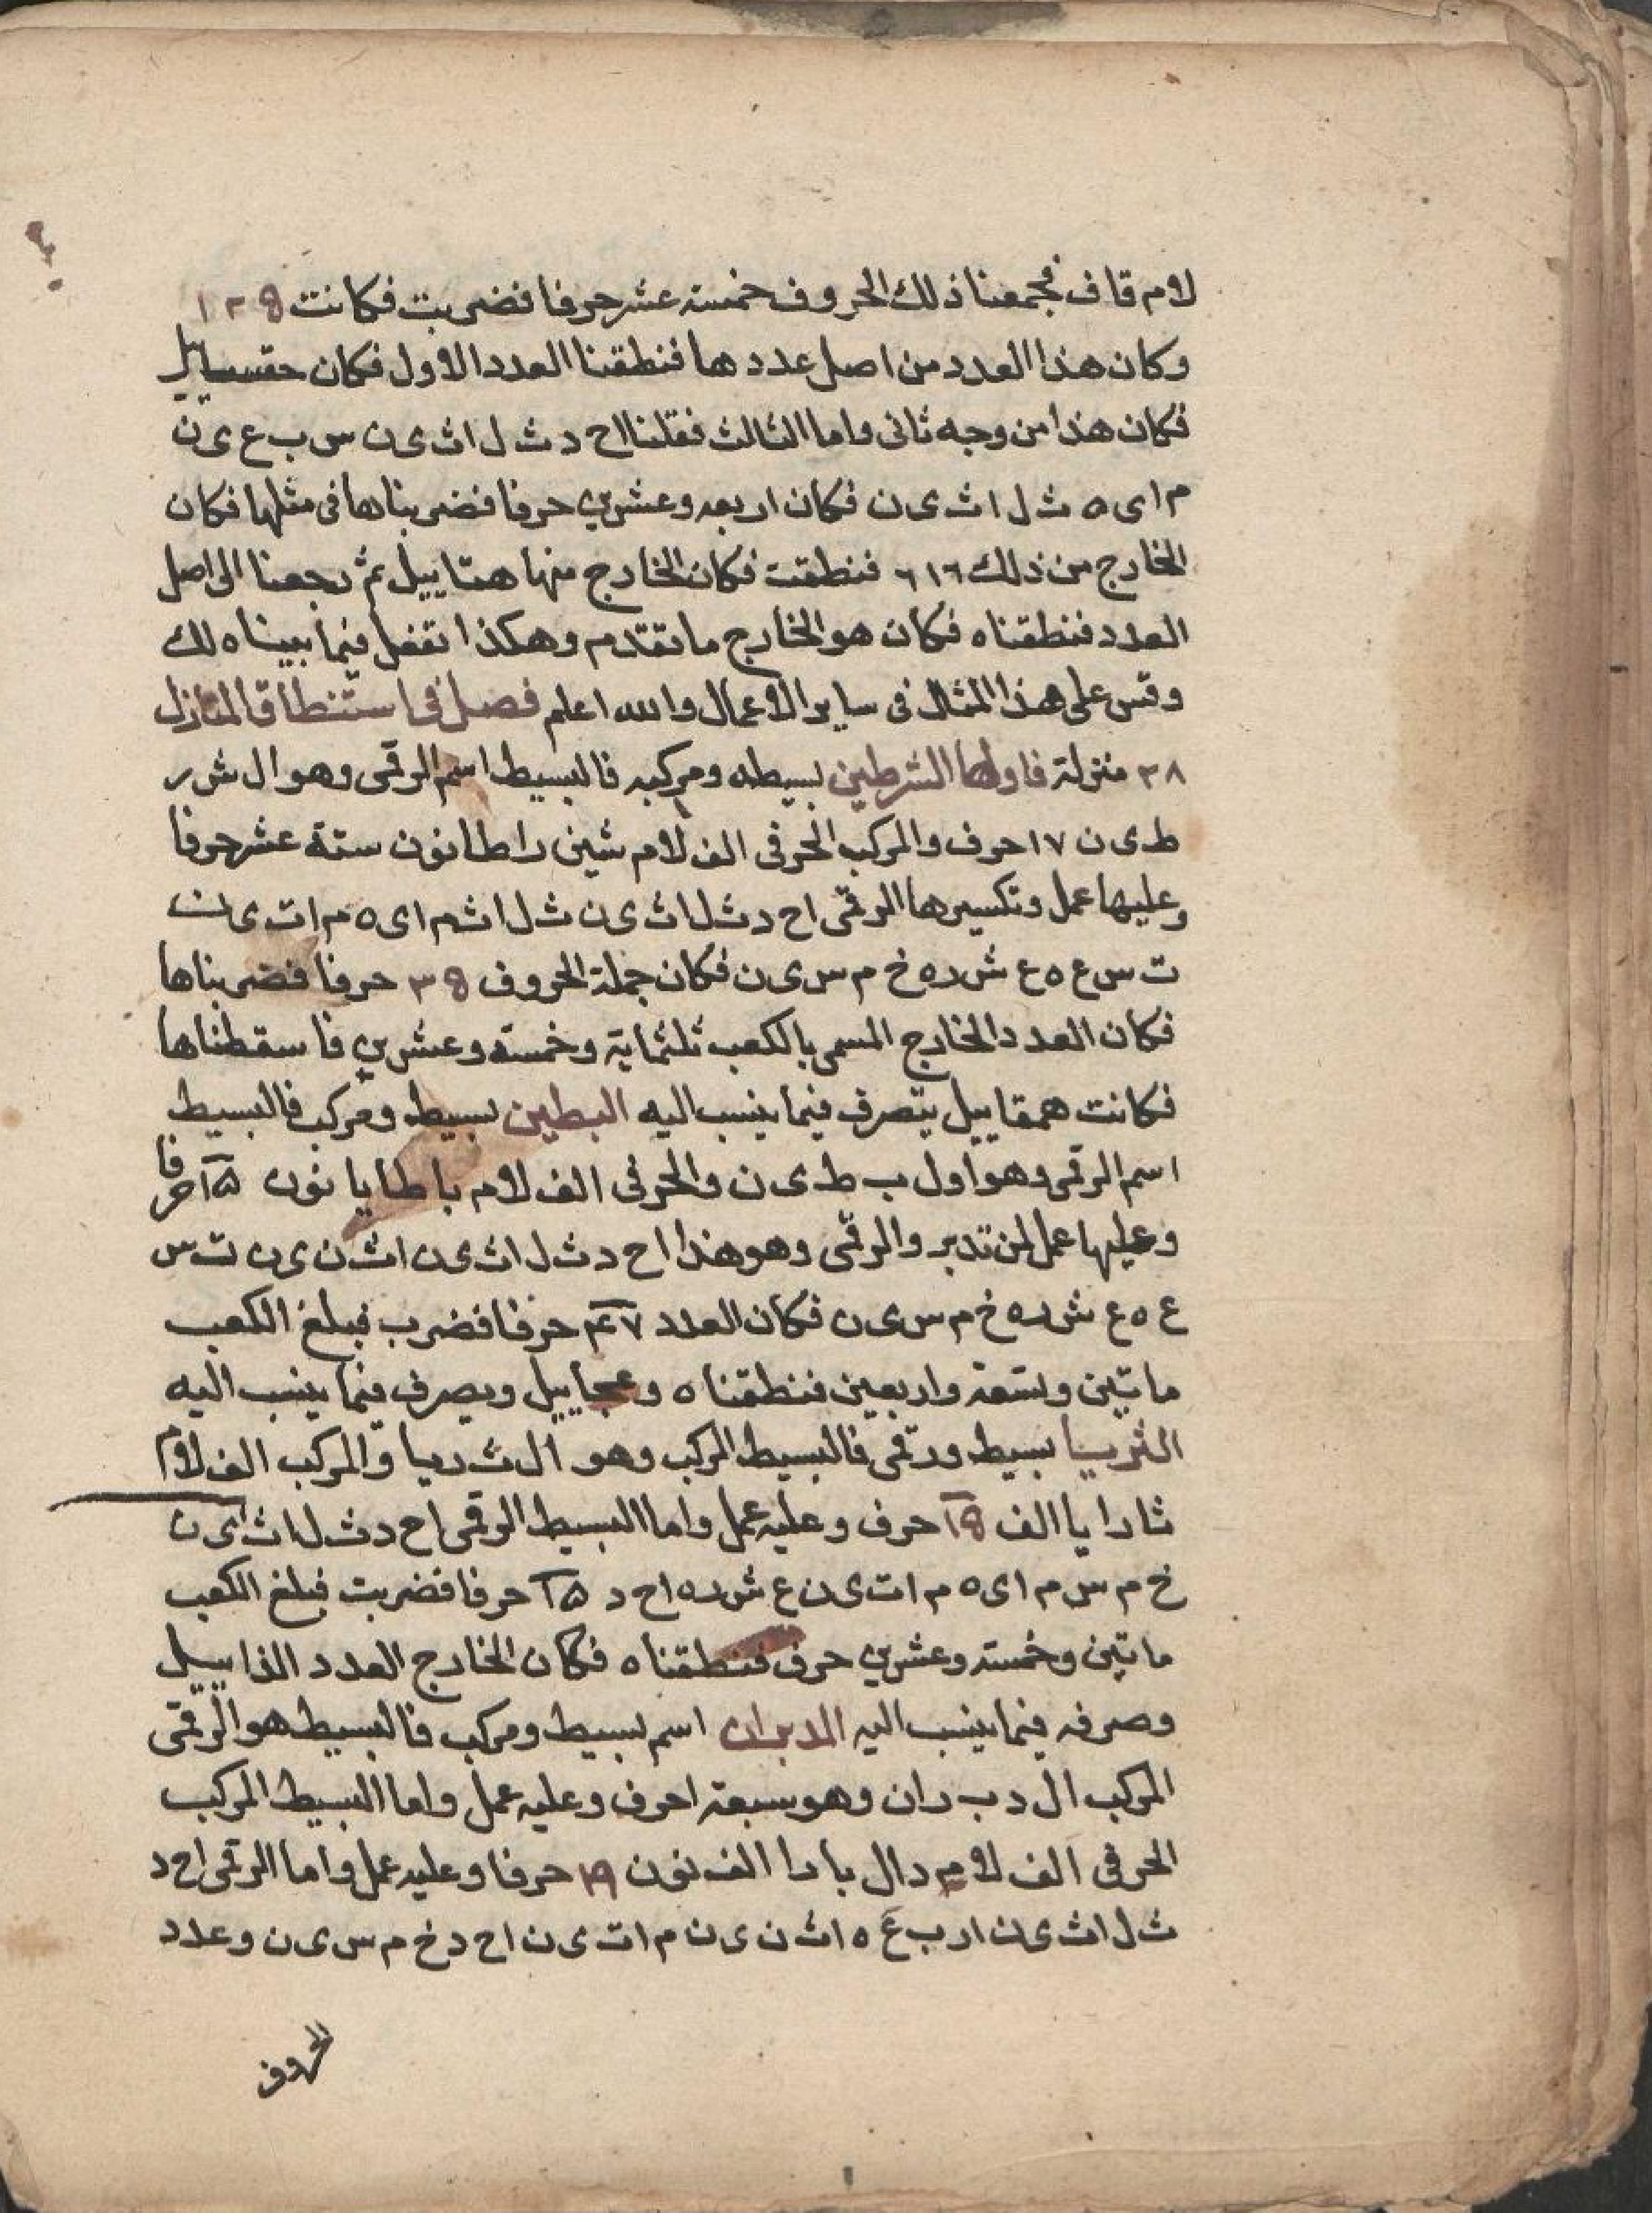 لام قاف فجمعنا ذلك الحروف خمسة عشر حرفا فضربت فكانت
وكان هذا العدد من اصل عددها فنطقنا العدد الاول فكان
فكان هذا من وجه ثاني واما الثالث فقلنا اح د ث ل اث ى ن س ب ع ى ن
م اى ه ث ل اث ى ن فكان اربعه وعشرين حرفا فضربناها في مثلها فكان
الخارج من ذلك ٦١٦ فنطقت فكان الخارج منها هتاييل ثم رجعنا الى اصل
العدد فنطقناه فكان هو الخارج ما تقدم وهكذا تفعل فيما بيناه لك
وقس على هذا المثال في ساير الاعمال والله اعلم فصل في استنطاق المنازل
٣٨ منزلة فاولها الشرطين بسيطه ومركبه فالبسيط اسم الرقمى وهو ال ش ر
ط ى ن ١٧ حرف والمركب الحرفى الف لام شين را طا نون ستة عشر حرفا
وعليها عمل وتكسيرها الرقمى اح د ث ل اث ى ن ث ل اث م اى ه م ات ى ن
ت س ع ه ع ش ر ه خ م س ى ن فكان جملة الحروف حرفا فضربناها
فكان العدد الخارج المسمى بالكعب ثلثماية وخمسة وعشرين فاسقطناها
فكانت همقاييل يتصرف فيما ينسب اليه البطين بسيط ومركب فالبسيط
اسم الرقمى وهو اول ب ط ى ن والحرفى الف لام با طا يا نون ١٥ حرفا
وعليها عمل لمن تدبر والرقمى وهو هذا اح د ث ل اث ى ن اث ن ى ن ت س
ع ه ع ش ر ه خ م س ى ن فكان العدد حرفا فضرب فبلغ الكعب
ماتين وتسعة واربعين فنطقناه وعجاييل ويصرف فيما ينسب اليه
الثريا بسيط ورقمى فالبسيط المركب وهو ال ث ريا والمركب الف لام
ثا را يا الف حرف وعليه عمل واما البسيط الرقمى اح د ث ل اث اى ن
خ م س م اى ه م ات ى ن ع ش ر ه اح د حرفا فضربت فبلغ الكعب
ماتين وخمسة وعشرين حرف فنطقناه فكان الخارج العدد الذاييل
وصرفه فيما ينسب اليه الدبران اسم بسيط ومركب فالبسيط هو الرقمى
المركب ال د ب ر ان وهو سبعة احرف وعليه عمل واما البسيط المركب
الحرفى الف لام دال با را الف نون ١٩ حرفا وعليه عمل واما الرقمى اح د
ث ل اث ى ن ار ب ع ه اث ن ى ن م ات ى ن اح د خ م س ى ن وعدد